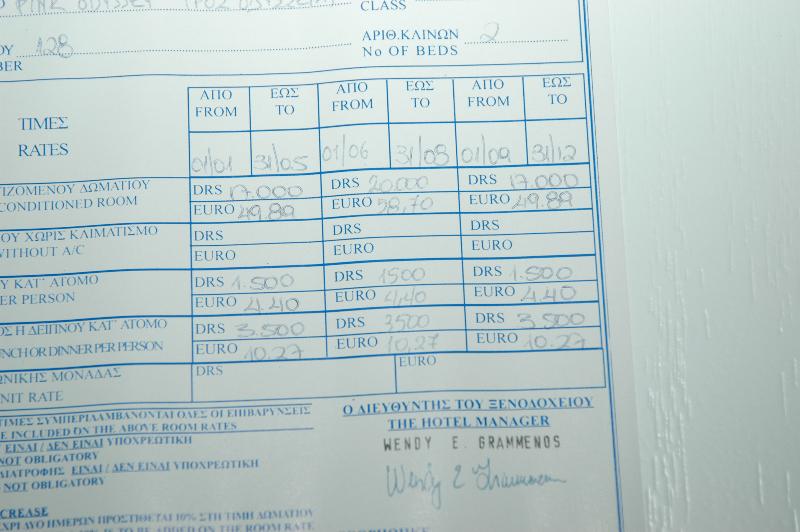 PINK ODYSSEY CLASS
ΟΥ 128 ΑΡΙΘ.ΚΛΙΝΩΝ 2
BER No OF BEDS
ΤΙΜΕΣ ΑΠΟ ΕΩΣ ΑΠΟ ΕΩΣ ΑΠΟ ΕΩΣ
RATES FROM TO FROM TO FROM TO
01/01 31/05 01/06 31/08 01/09 31/12
ΤΙΖΟΜΕΝΟΥ ΔΩΜΑΤΙΟΥ DRS 17.000 DRS 20.000 DRS 17.000
CONDITIONED ROOM EURO 49.89 EURO 58,70 EURO 49.89
ΟΥ ΧΩΡΙΣ ΚΛΙΜΑΤΙΣΜΟ DRS DRS DRS
WITHOUT A/C EURO EURO EURO
Υ ΚΑΤ' ΑΤΟΜΟ DRS 1.500 DRS 1500 DRS 1.500
ER PERSON EURO 4.40 EURO 4,40 EURO 4.40
Σ Η ΔΕΙΠΝΟΥ ΚΑΤ' ΑΤΟΜΟ DRS 3.500 DRS 3500 DRS 3.500
NCH OR DINNER PER PERSON EURO 10.27 EURO 10,27 EURO 10.27
ΩΝΙΚΗΣ ΜΟΝΑΔΑΣ DRS EURO
NIT RATE
ΤΙΜΕΣ ΣΥΜΠΕΡΙΛΑΜΒΑΝΟΝΤΑΙ ΟΛΕΣ ΟΙ ΕΠΙΒΑΡΥΝΣΕΙΣ
E INCLUDED ON THE ABOVE ROOM RATES
ΕΙΝΑΙ / ΔΕΝ ΕΙΝΑΙ ΥΠΟΧΡΕΩΤΙΚΗ
NOT OBLIGATORY
ΔΙΑΤΡΟΦΗΣ ΕΙΝΑΙ / ΔΕΝ ΕΙΝΑΙ ΥΠΟΧΡΕΩΤΙΚΗ
S NOT OBLIGATORY
Ο ΔΙΕΥΘΥΝΤΗΣ ΤΟΥ ΞΕΝΟΔΟΧΕΙΟΥ
THE HOTEL MANAGER
WENDY E. GRAMMENOS
Wendy E Grammenos
CREASE
ΕΧΡΙ ΔΥΟ ΗΜΕΡΩΝ ΠΡΟΣΤΙΘΕΤΑΙ 10% ΣΤΗ ΤΙΜΗ ΔΩΜΑΤΙΟΥ
TO BE ADDED ON THE ROOM RATE